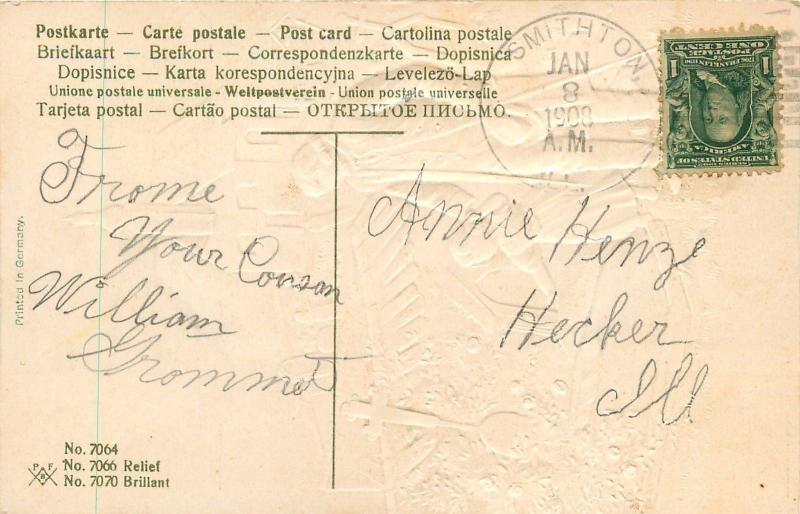 Postkarte — Carte postale — Post card — Cartolina postale
Briefkaart — Brefkort — Correspondenzkarte — Dopisnica
Dopisnice — Karta korespondencyjna — Levelező-Lap
Unione postale universale - Weltpostverein - Union postale universelle
Tarjeta postal — Cartão postal — ОТКРЫТОЕ ПИСЬМО.
SMITHTON,
JAN
8
1908
A.M.
ILL.
SERIES 1902
UNITED STATES OF
AMERICA
FRANKLIN
POSTAGE
ONE CENT
1 1
Frome
Your Couson
William
Grommet
Annie Henze
Hecker
Ill
Printed in Germany.
P F
B
No. 7064
No. 7066 Relief
No. 7070 Brillant